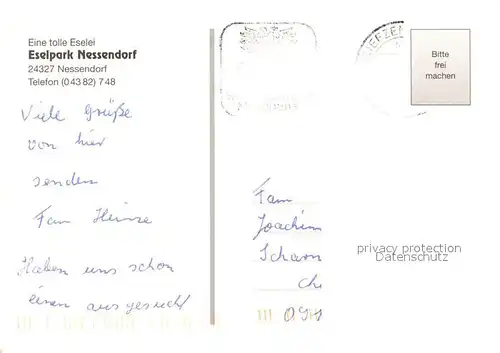 Eine tolle Eselei
Eselpark Nessendorf
24327 Nessendorf
Telefon (0 43 82) 7 48
Viele Grüße
von hier
senden
Fam Heinze
Haben uns schon
einen ausgesucht
Bitte
frei
machen
Fam
Joachim
Scharn
Ch
privacy protection
Datenschutz